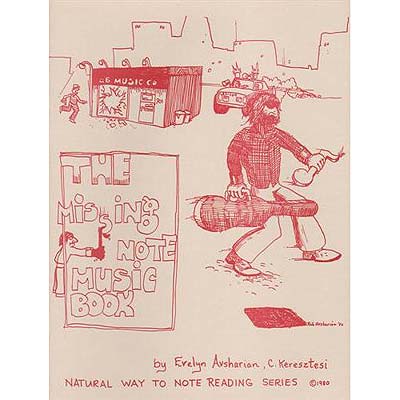 A&G MUSIC CO
THE
MISSING
NOTE
MUSIC
BOOK
Rob Avsharian '80
by Evelyn Avsharian, C. Keresztesi
NATURAL WAY TO NOTE READING SERIES ©1980